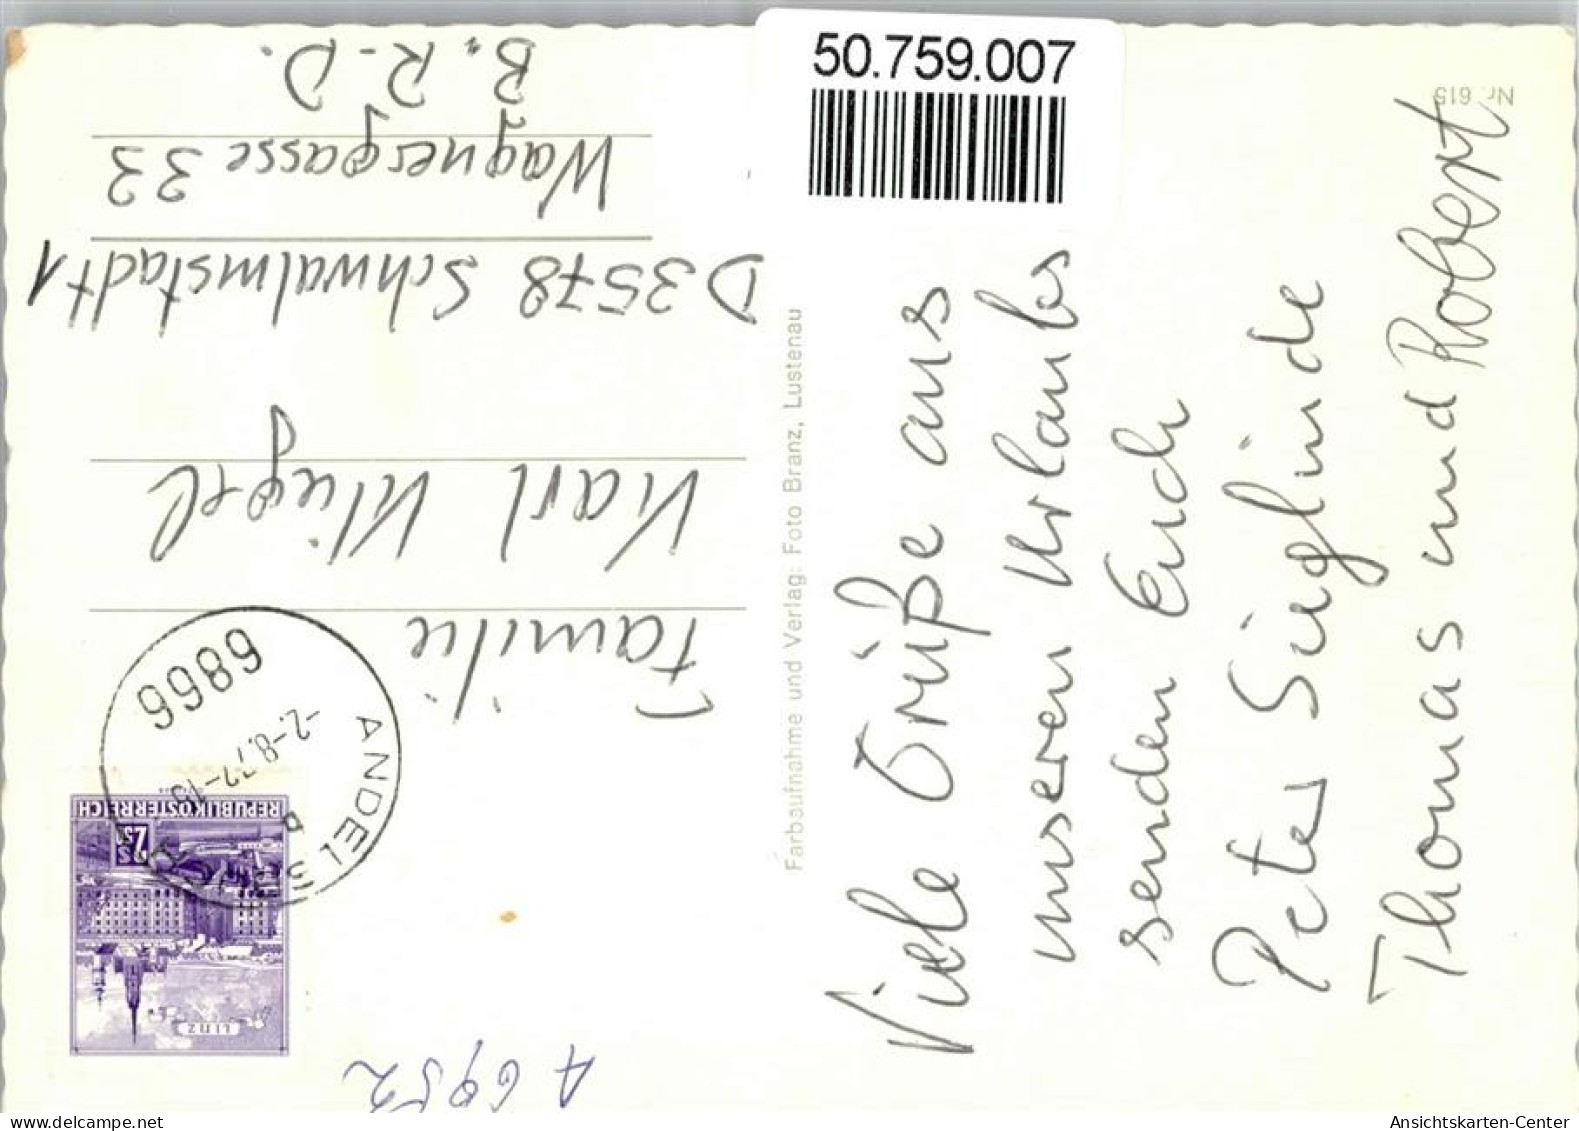 50.759.007
Nr. 615
Viele Grüße aus
unseren Urlaub
senden Euch
Peter Sieglinde
Thomas und Robert
Farbaufnahme und Verlag: Foto Branz, Lustenau
Familie
Karl Kliegel
D 3578 Schwalmstadt 1
Wagnergasse 33
B. R. D.
6866
ANDELSBUCH
-2.-8.72-18
B
REPUBLIK ÖSTERREICH
2S
LINZ
A 6952
delcampe.net
Ansichtskarten-Center